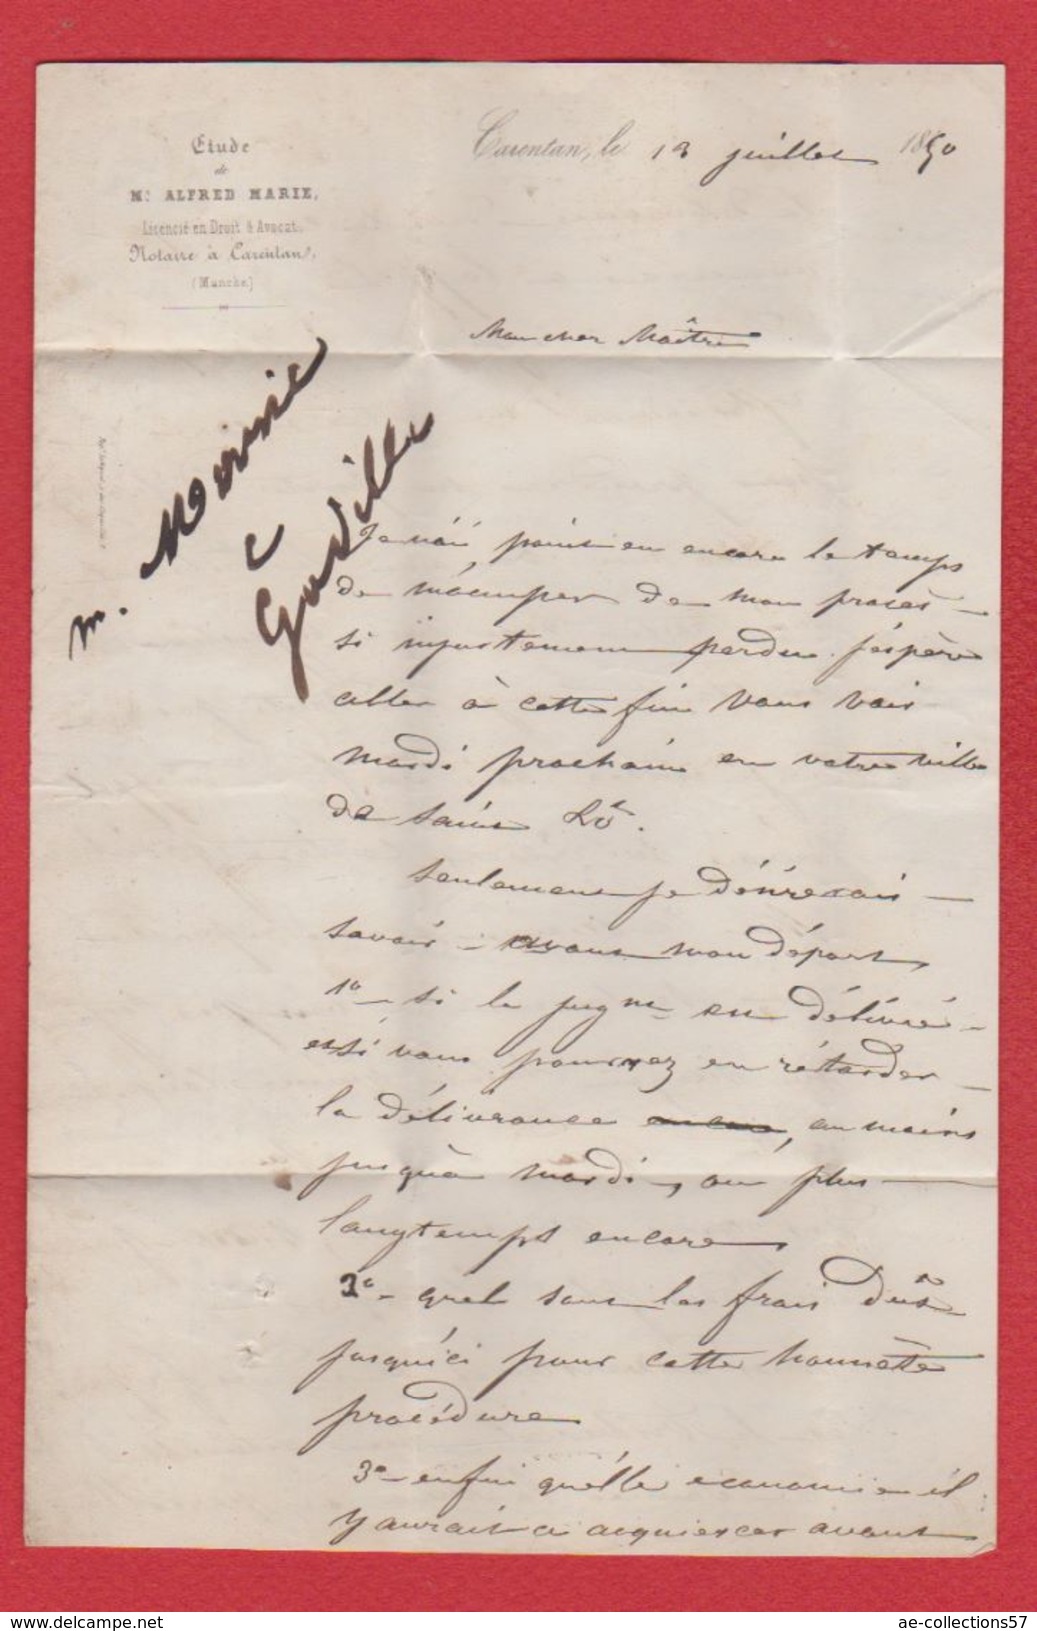 Etude
de
Me ALFRED MARIE,
Licencié en Droit & Avocat,
Notaire à Carentan,
(Manche)
Carentan, le 13 juillet 1850
Mon cher Maître
m. Marie
c
Je n'ai point eu encore le temps
de m'occuper de mon procès
si injustement perdu. j'espère
aller à cette fin vous voir
mardi prochain en votre ville
de saint Lô.
seulement je désirerais
savoir avant mon départ,
1o si le jugmt est délivré
et si vous pourrez en rétarder
la délivrance, au moins
jusqu'à mardi, ou plus
longtemps encore
2o quel sont les frais dûs
jusqu'ici pour cette honnête
procédure
3o enfin qu'elle economie il
y aurait a acquiescer avant
www.delcampe.net
ae-collections57